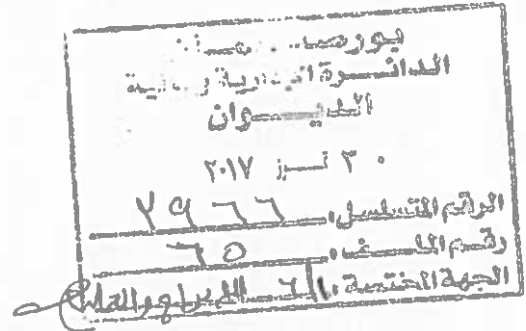 بورصة عمان
الدائرة الإدارية والمالية
الديوان
٣٠ تموز ٢٠١٧
الرقم المتسلسل: ٢٩٦٦
رقم الملف: ٦٥
الجهة المختصة: